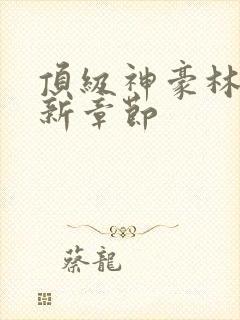 頂級神豪林
新章節
蔡龍